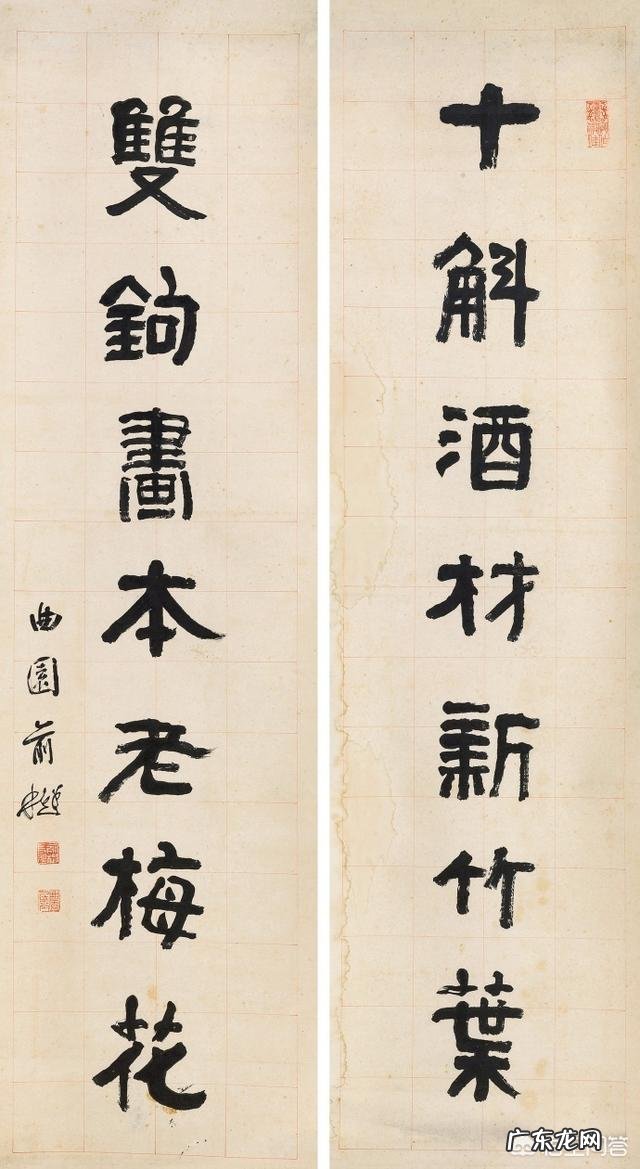 十斛酒材新竹葉
雙鉤畫本老梅花
曲園俞樾
广东龙网